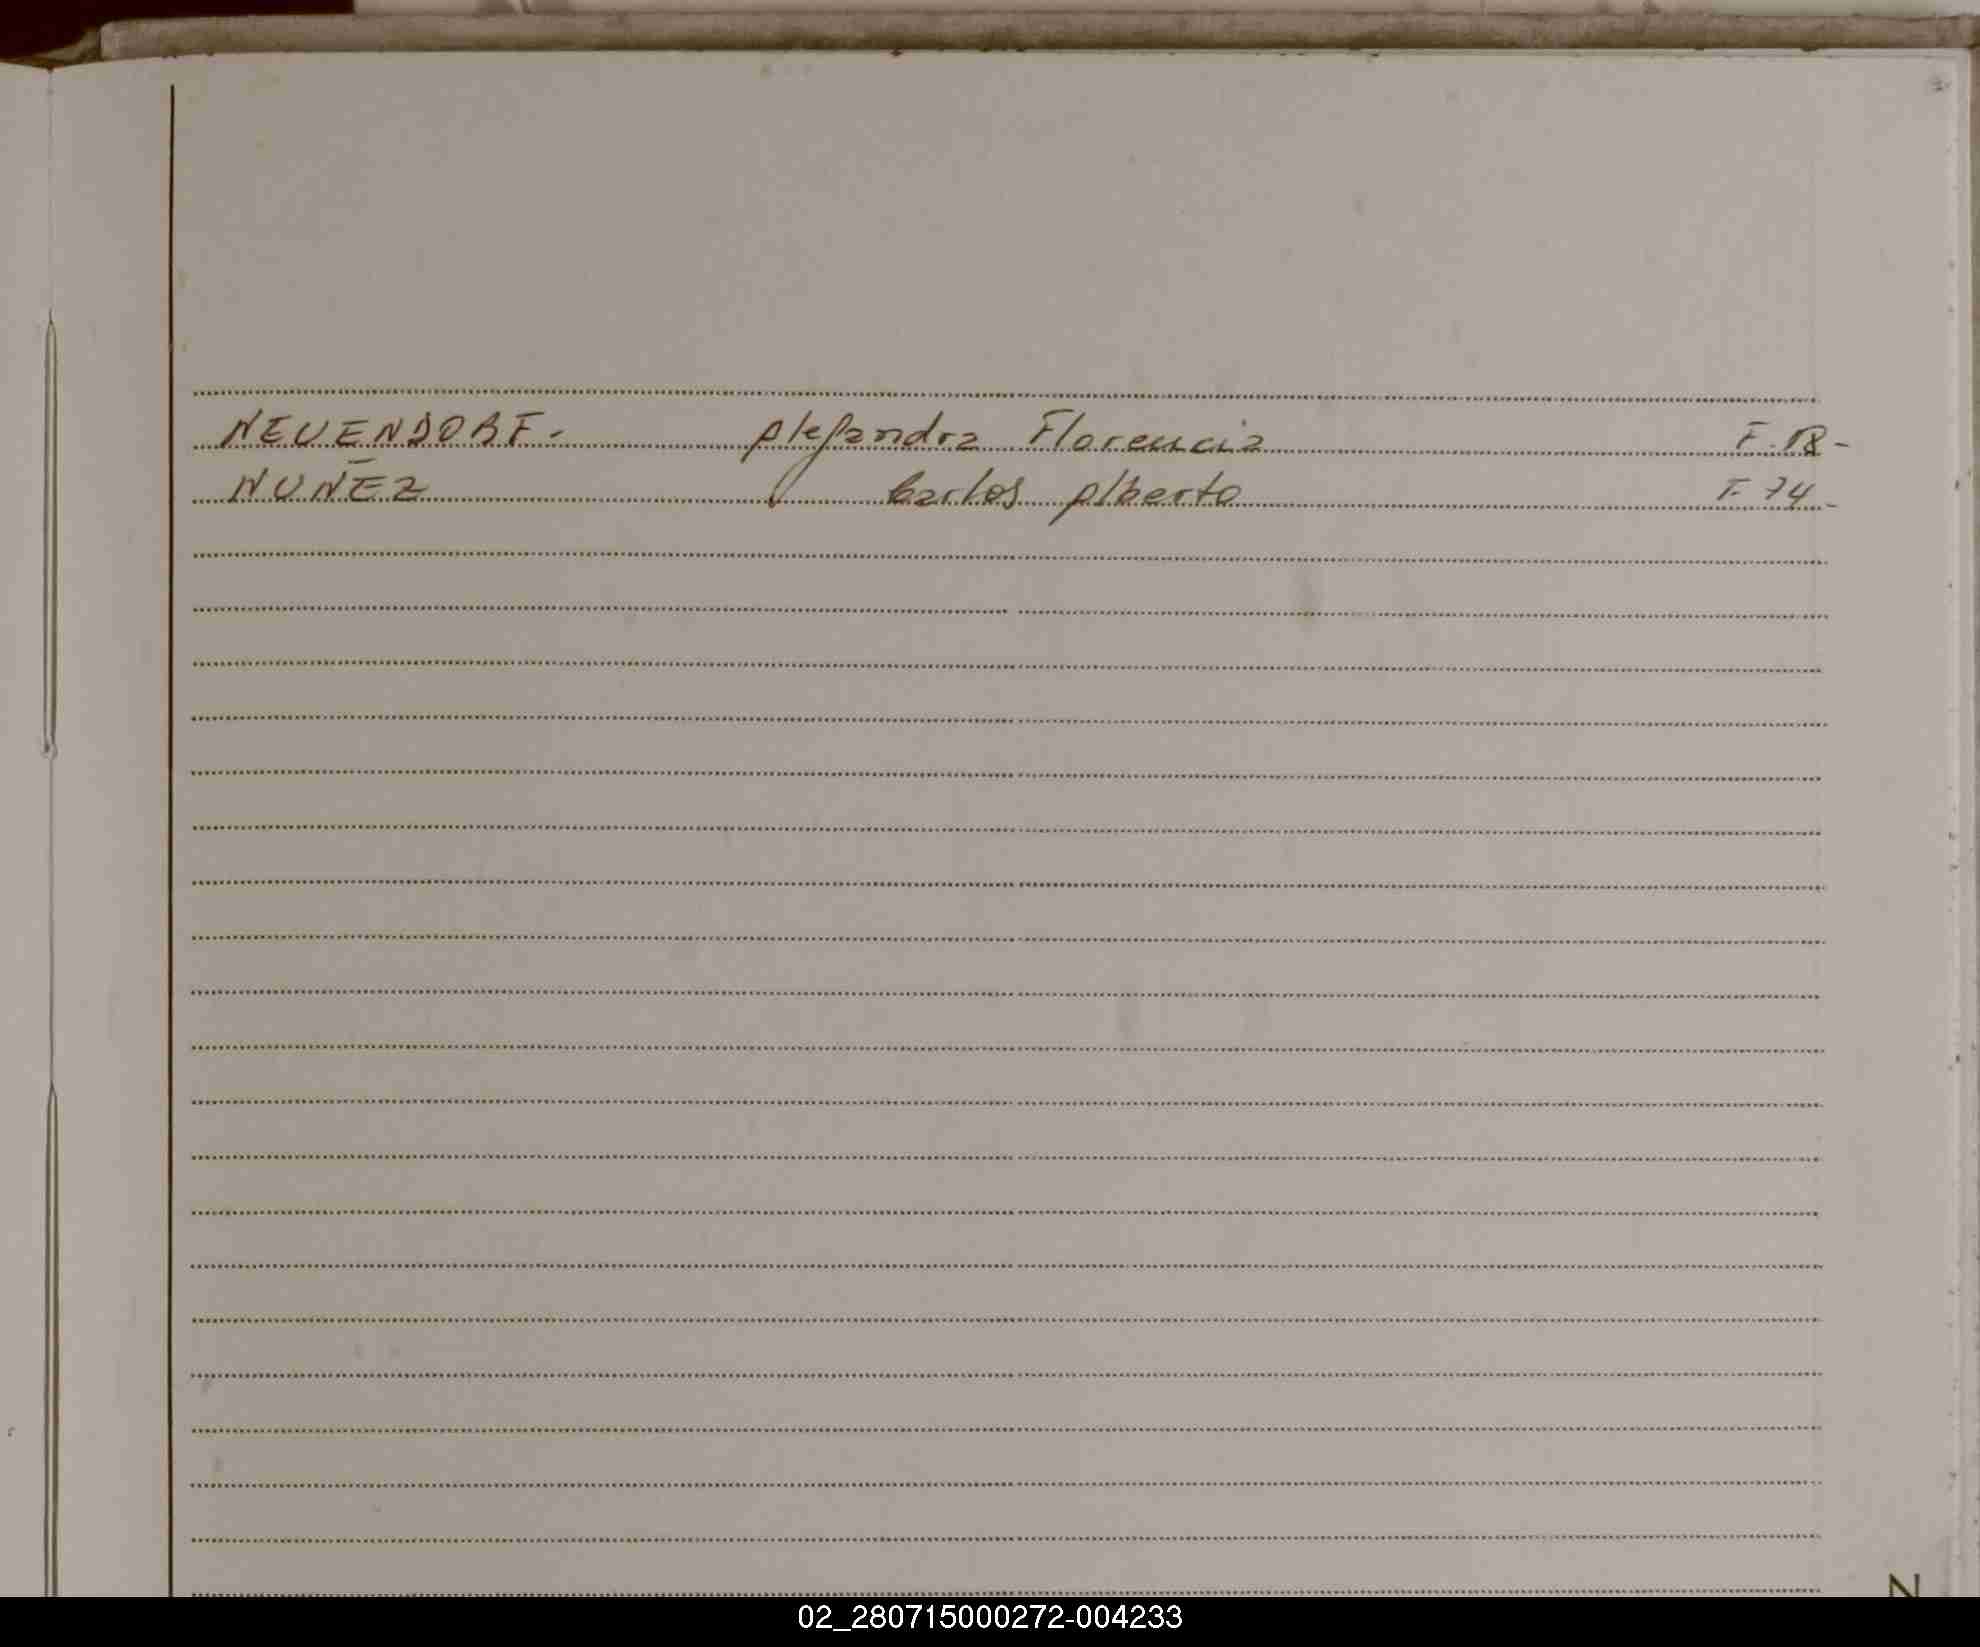 NEUENDORF.- Alejandra Florencia F.18-
NUÑEZ Carlos Alberto F.74-
N
02_280715000272-004233